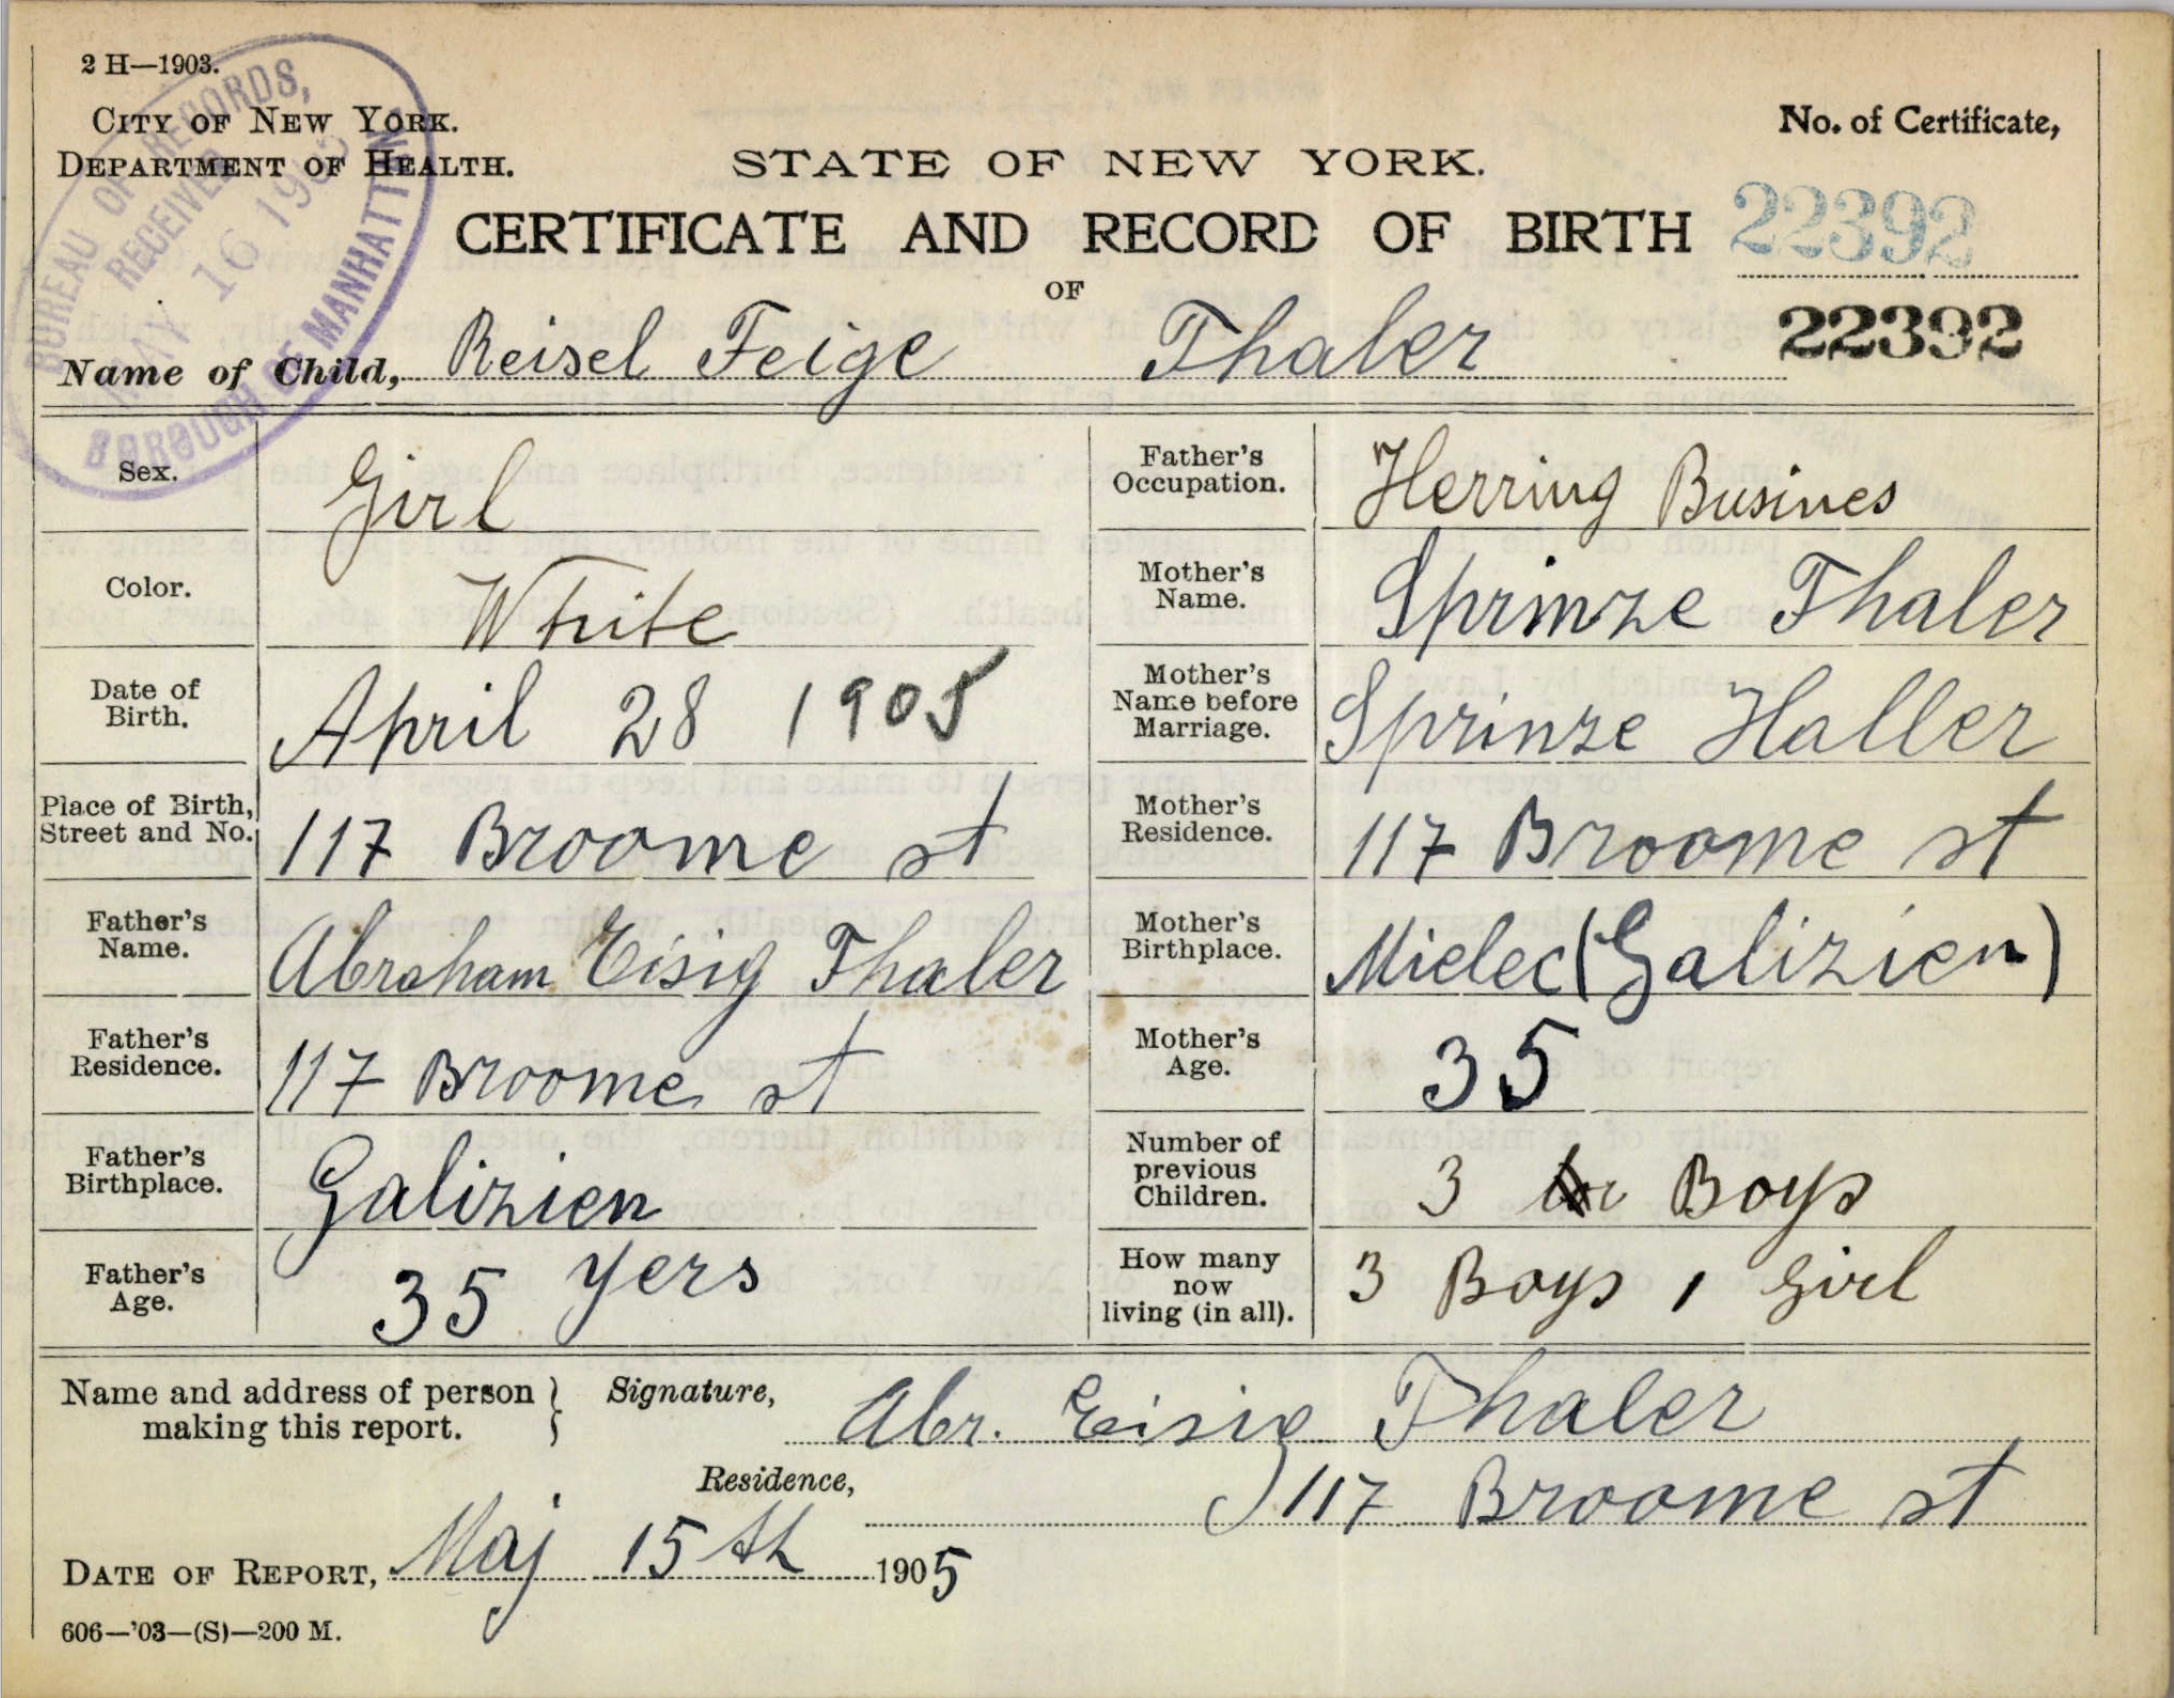 2 H—1903.
CITY OF NEW YORK.
DEPARTMENT OF HEALTH.
BUREAU OF RECORDS,
RECEIVED
MAY 16 1905
BOROUGH OF MANHATTAN
No. of Certificate,
STATE OF NEW YORK.
CERTIFICATE AND RECORD OF BIRTH
22392
OF
22392
Name of Child, Reisel Feige Thaler
Sex. Girl
Color. White
Date of Birth. April 28 1905
Place of Birth, Street and No. 117 Broome st
Father's Name. Abraham Eisig Thaler
Father's Residence. 117 Broome st
Father's Birthplace. Galizien
Father's Age. 35 yers
Father's Occupation. Herring Busines
Mother's Name. Sprinze Thaler
Mother's Name before Marriage. Sprinze Haller
Mother's Residence. 117 Broome st
Mother's Birthplace. Mielec (Galizien)
Mother's Age. 35
Number of previous Children. 3 Boys
How many now living (in all). 3 Boys 1 Girl
Name and address of person making this report.
Signature, Abr. Eisig Thaler
Residence, 117 Broome st
DATE OF REPORT, Maj 15th 1905
606—'03—(S)—200 M.